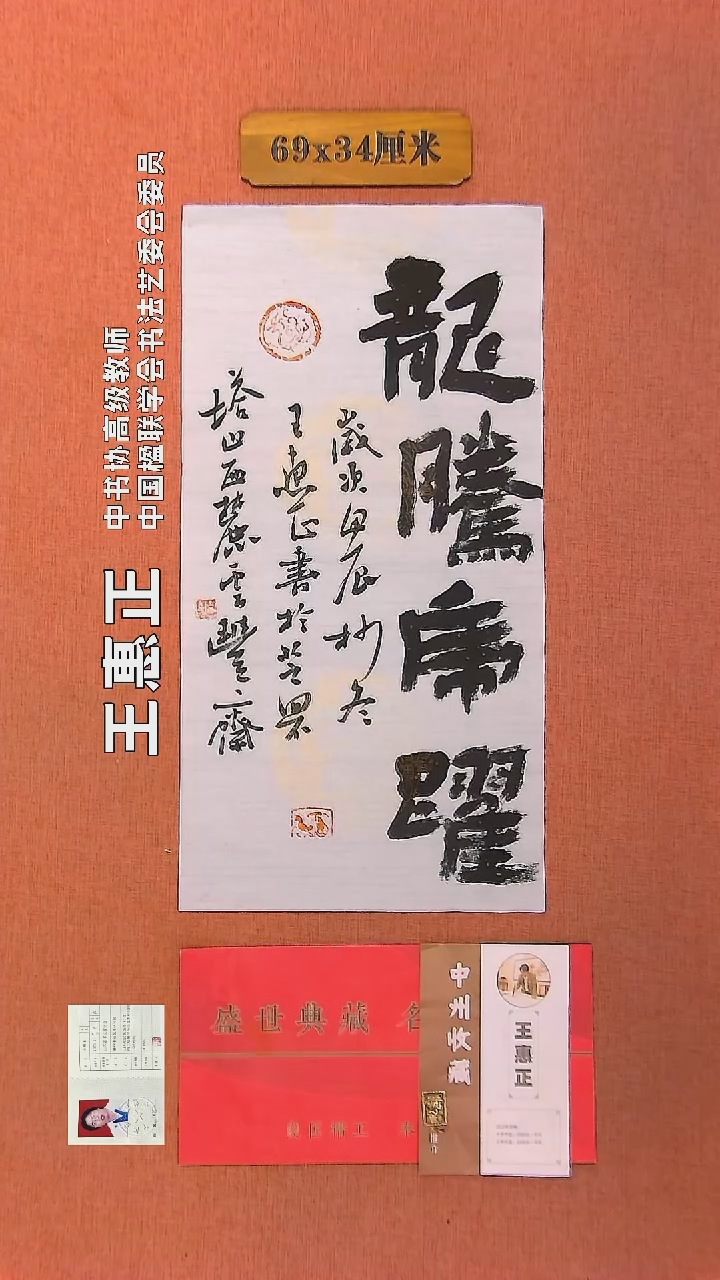 69x34厘米
龍騰虎躍
歲次甲辰杪冬
王惠正書於芝罘
塔山西麓雲豐齋
王惠正
中书协高级教师
中国楹联学会书法艺委会委员
盛世典藏 名
中州收藏
王惠正